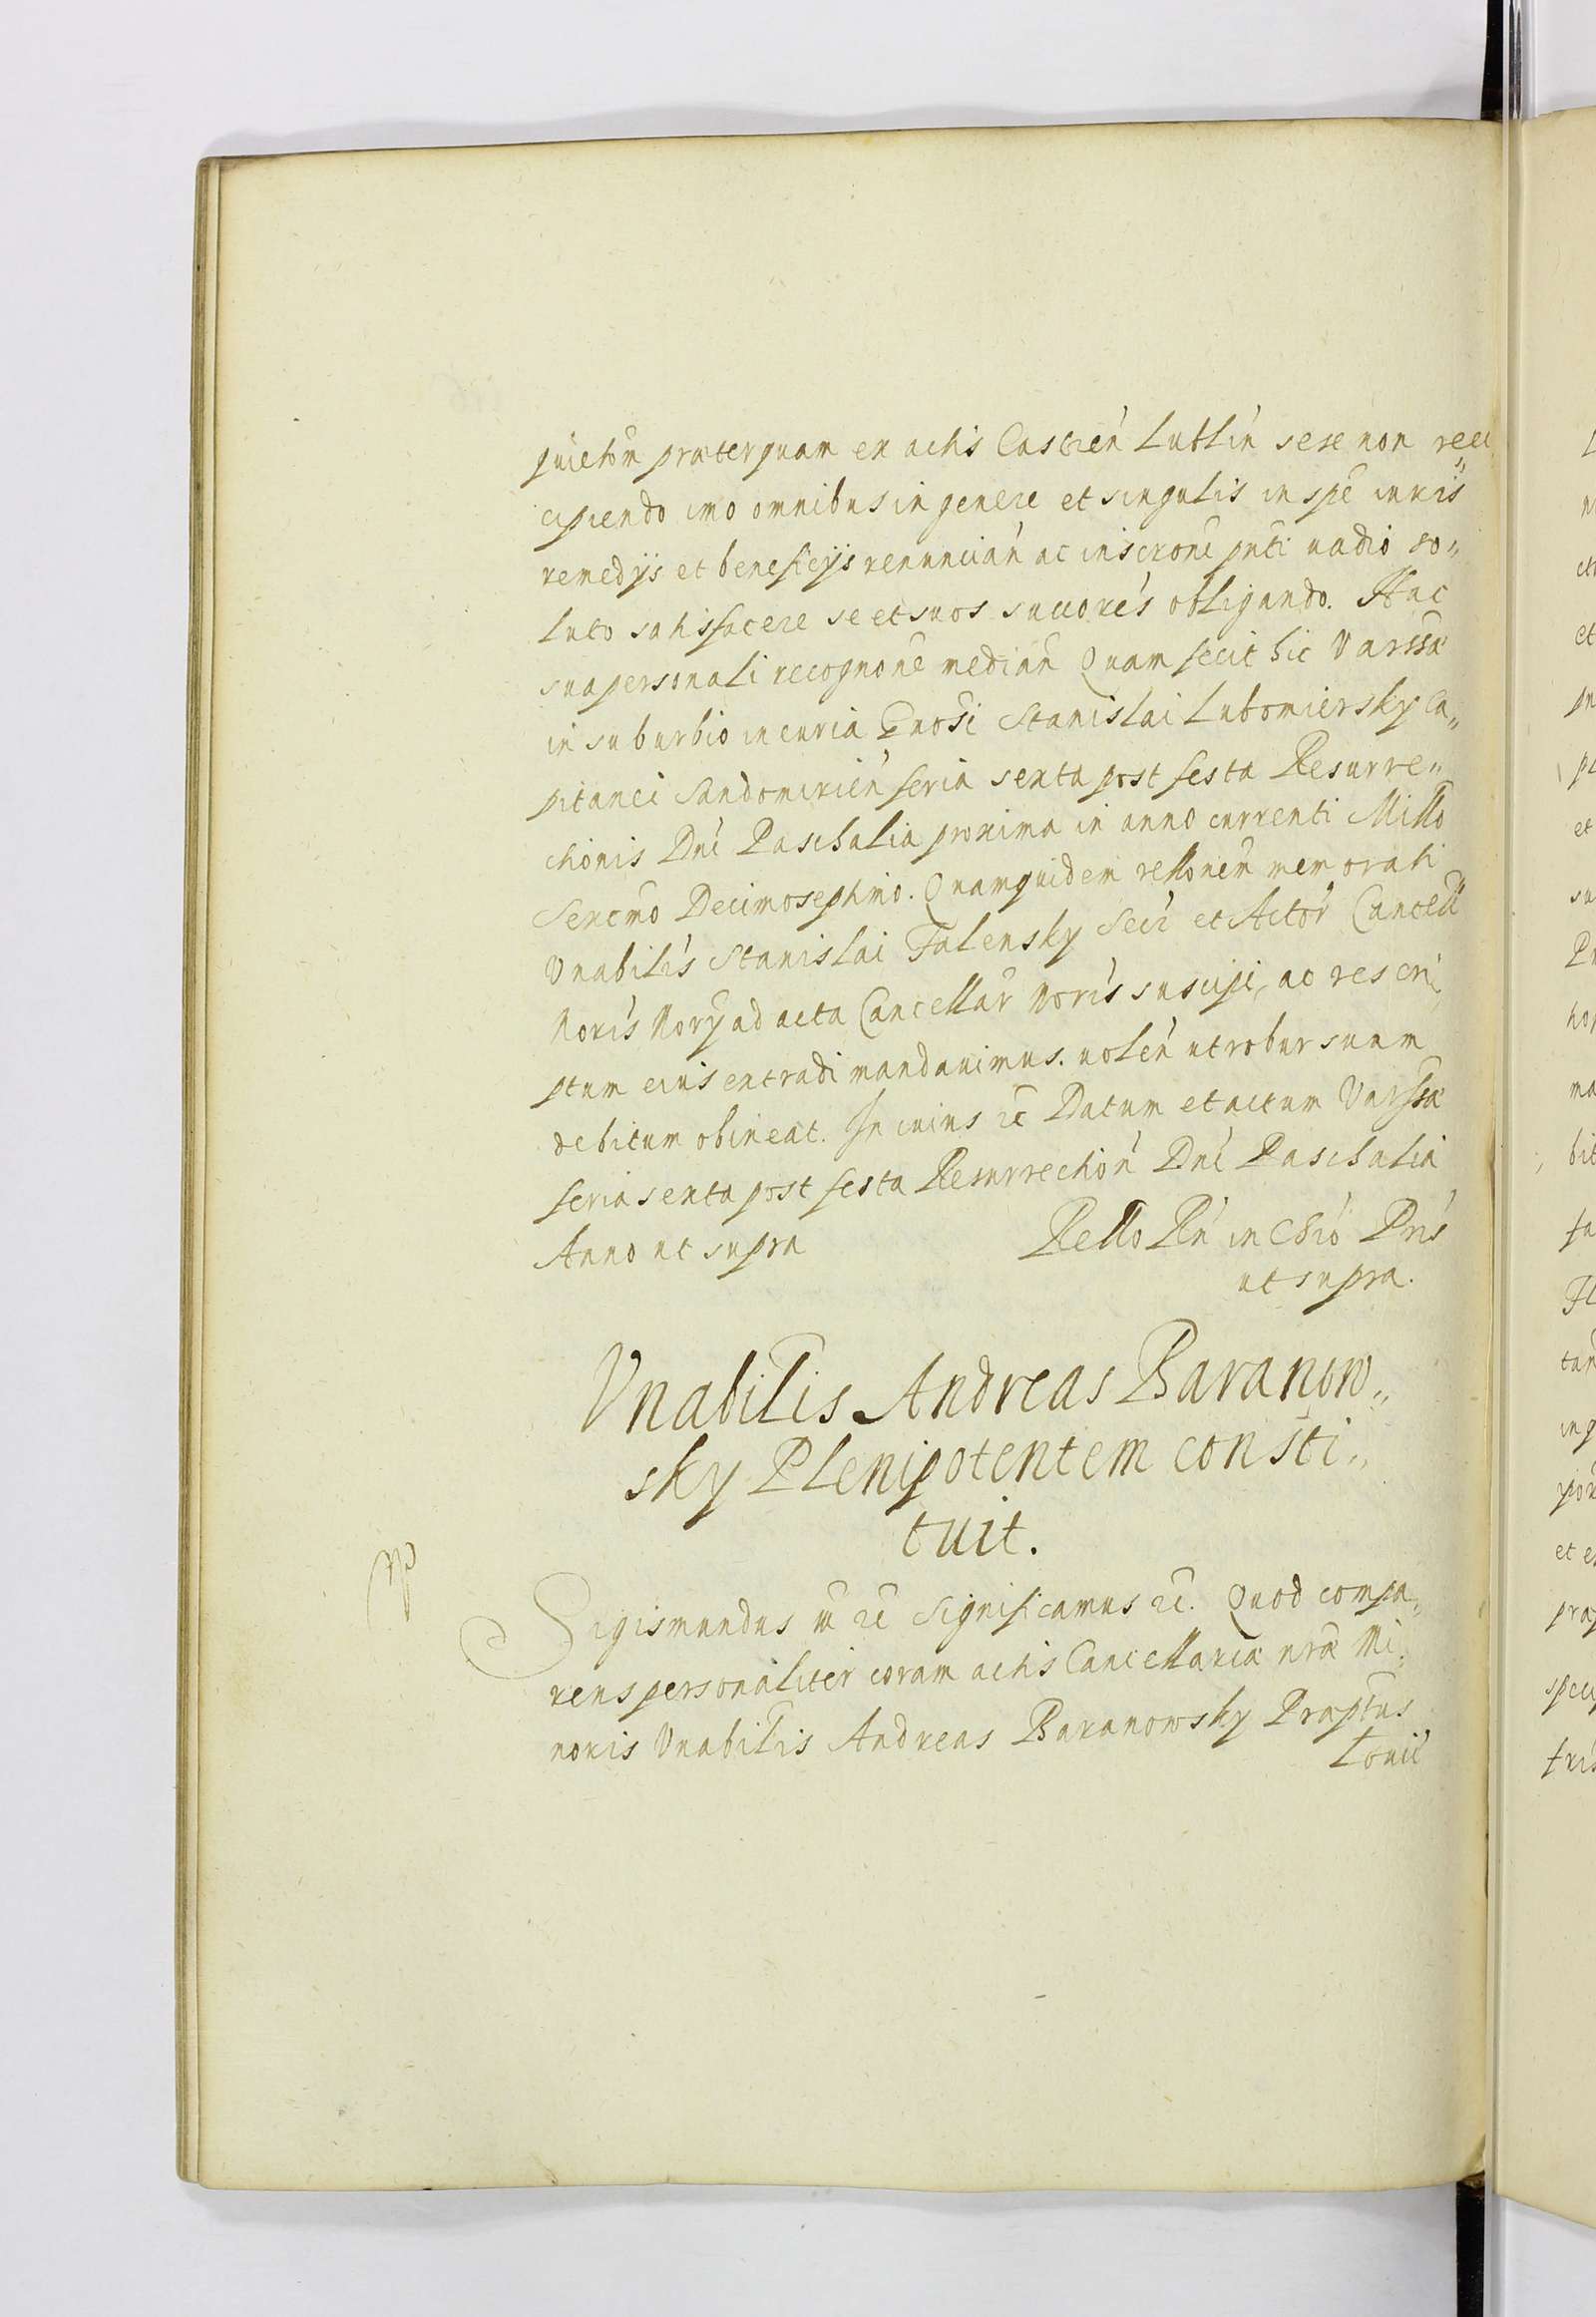 quietõm præterquam ex actis Castreń Lubliń sese non reci
cipiendo imo omnibus in genere et singulis in spē iuris
remedijs et beneficijs renunciań ac inscrōne pnti uadio so„
luto satisfacere se et suos succorés obligando. Hac
sua personali recognōne mediań Quam fecit hic Varssæ
in suburbio in curia Gnosi Stanislai Lubomiersky Ca„
pitanei Sandomirień feria sexta post festa Resurre„
ctionis Dni Paschalia proxima in anno currenti Millo
Sexcmo Decimoseptimo. Quamquidem rellonem memorati
Vnabilis Stanislai Falensky Secr et Actor Cancell
Noris Nory ad acta Cancellar Noris suscipi, ac rescri„
ptum eius extradi mandauimus. uoleń ut robur suum
debitum obineat. In cuius rē Datum et actum Varssæ
feria sexta post festa Resurrectioń Dni Paschalia
Anno ut supra
Rello Rń in Chrō Pris
ut supra.
Vnabilis Andreas Baranow„
sky Plenipotentem consti„
tuit.
Sigismundus III rē Significamus rē. Quod compa„
rens personaliter coram actis Cancellariæ nræ Mi„
noris Vnabilis Andreas Baranowsky Præptus
Louic